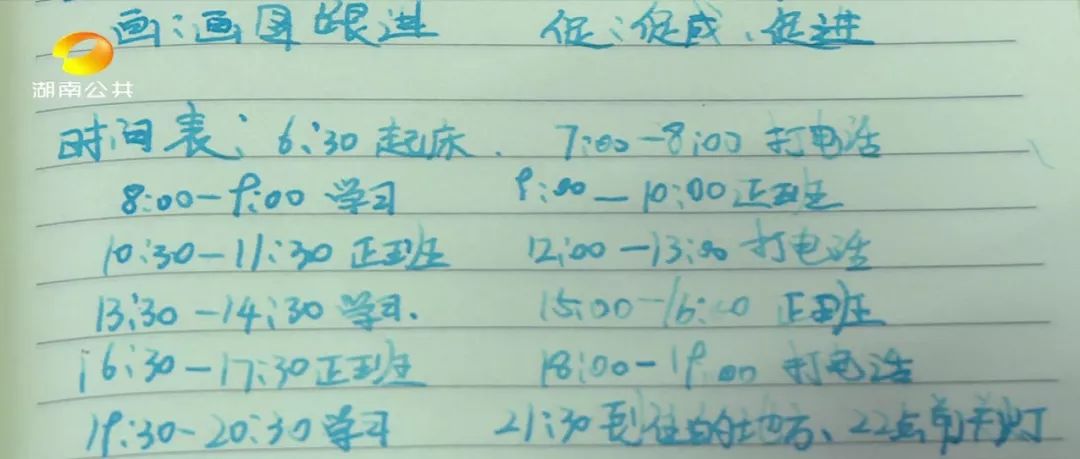 画:画图跟进 促:促成、促进
湖南公共
时间表: 6:30 起床. 7:00-8:00 打电话
8:00-9:00 学习 9:00-10:00 正班
10:30-11:30 正班 12:00-13:00 打电话
13:30-14:30 学习. 15:00-16:00 正班
16:30-17:30 正班 18:00-19:00 打电话
19:30-20:30 学习 21:30 到住的地方、22点前关灯